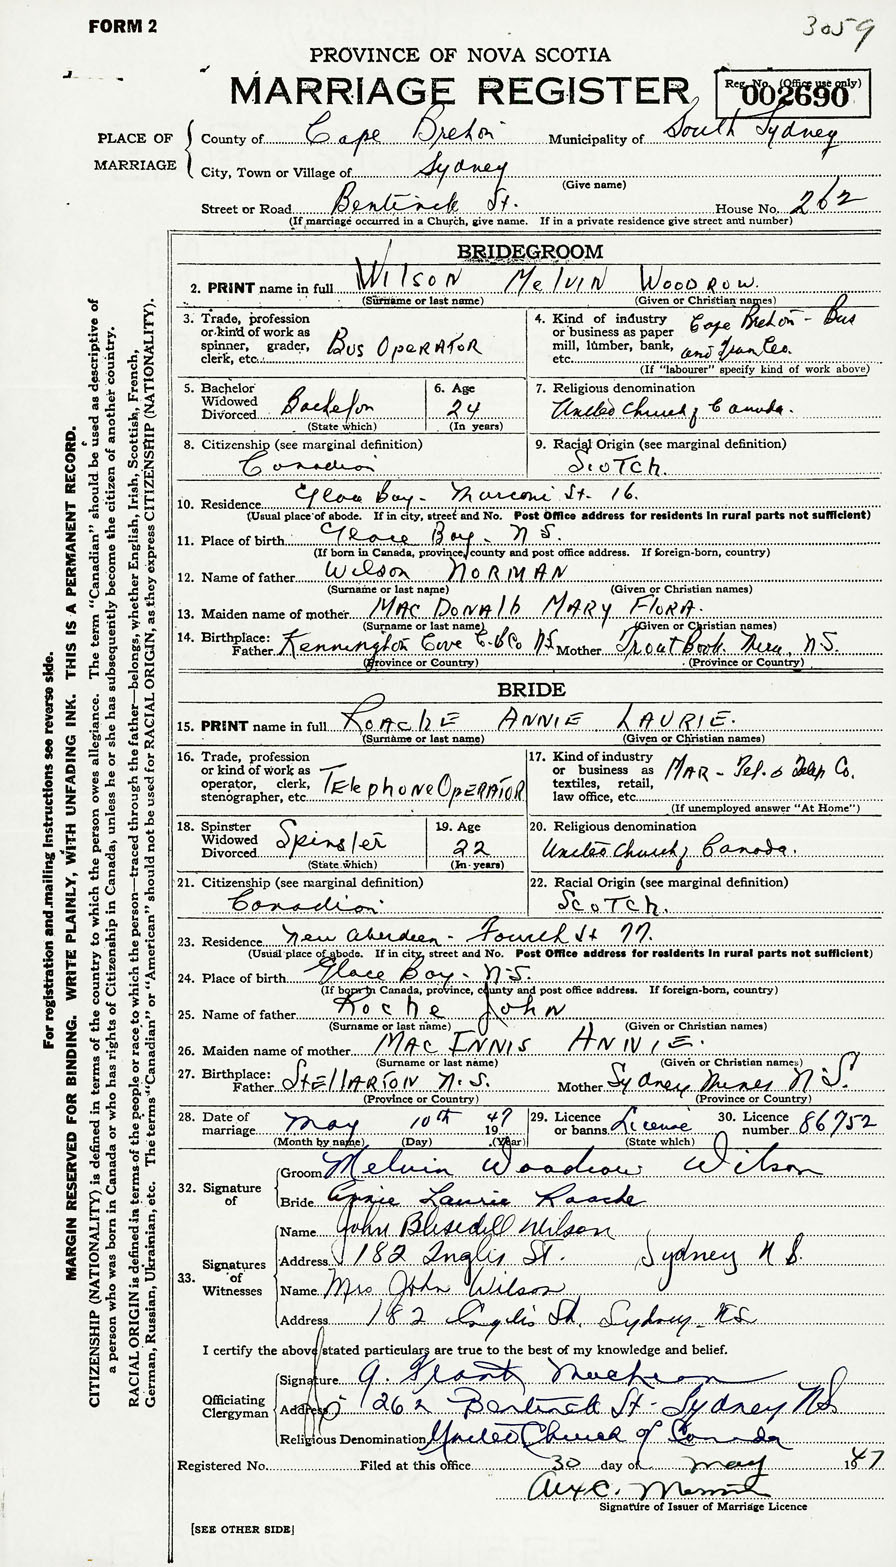 FORM 2
3059
PROVINCE OF NOVA SCOTIA
MARRIAGE REGISTER
Reg. No. (Office use only)
002690
PLACE OF MARRIAGE
County of Cape Breton Municipality of South Sydney
City, Town or Village of Sydney
(Give name)
Street or Road Bentinck St. House No. 262
(If marriage occurred in a Church, give name. If in a private residence give street and number)
BRIDEGROOM
2. PRINT name in full WILSON MELVIN WOODROW.
(Surname or last name) (Given or Christian names)
3. Trade, profession or kind of work as spinner, grader, clerk, etc. BUS OPERATOR
4. Kind of industry or business as paper mill, lumber, bank, etc. Cape Breton - Bus and Tram Co.
(If "labourer" specify kind of work above)
5. Bachelor Widowed Divorced Bachelor
(State which)
6. Age 24
(In years)
7. Religious denomination
United Church of Canada.
8. Citizenship (see marginal definition)
Canadian
9. Racial Origin (see marginal definition)
SCOTCH.
10. Residence Glace Bay - Marconi St. 16.
(Usual place of abode. If in city, street and No. Post Office address for residents in rural parts not sufficient)
11. Place of birth Glace Bay - N.S.
(If born in Canada, province, county and post office address. If foreign-born, country)
12. Name of father Wilson NORMAN
(Surname or last name) (Given or Christian names)
13. Maiden name of mother MAC DONALD MARY FLORA.
(Surname or last name) (Given or Christian names)
14. Birthplace: Father Kennington Cove C.B Co N.S. Mother Trout Brook Mira, N.S.
(Province or Country) (Province or Country)
BRIDE
15. PRINT name in full ROACHE ANNIE LAURIE.
(Surname or last name) (Given or Christian names)
16. Trade, profession or kind of work as operator, clerk, stenographer, etc. TElephone OpERATOR
17. Kind of industry or business as textiles, retail, law office, etc. MAR - Tel. & Telep Co.
(If unemployed answer "At Home")
18. Spinster Widowed Divorced Spinster
(State which)
19. Age 22
(In years)
20. Religious denomination
United Church of Canada.
21. Citizenship (see marginal definition)
Canadian
22. Racial Origin (see marginal definition)
SCOTCH.
23. Residence New Aberdeen - Fourth St 77.
(Usual place of abode. If in city, street and No. Post Office address for residents in rural parts not sufficient)
24. Place of birth Glace Bay - N.S.
(If born in Canada, province, county and post office address. If foreign-born, country)
25. Name of father Roche John
(Surname or last name) (Given or Christian names)
26. Maiden name of mother MAC INNIS ANNIE.
(Surname or last name) (Given or Christian names)
27. Birthplace: Father STEllARTON N.S. Mother Sydney Mines N.S.
(Province or Country) (Province or Country)
28. Date of marriage May 10th 1947
(Month by name) (Day) (Year)
29. Licence or banns License
(State which)
30. Licence number 86752
32. Signature of
Groom Melvin Woodrow Wilson
Bride Annie Laurie Roache
33. Signatures of Witnesses
Name John Wilson
Address 182 Inglis St. Sydney N.S.
Name Mrs John Wilson
Address 182 Inglis St. Sydney - N.S
I certify the above stated particulars are true to the best of my knowledge and belief.
Officiating Clergyman
Signature Grant
Address 262 Bentinck St - Sydney N.S
Religious Denomination United Church of Canada
Registered No. Filed at this office 30 day of May 1947
Signature of Issuer of Marriage Licence
[SEE OTHER SIDE]
For registration and mailing instructions see reverse side.
MARGIN RESERVED FOR BINDING. WRITE PLAINLY, WITH UNFADING INK. THIS IS A PERMANENT RECORD.
CITIZENSHIP (NATIONALITY) is defined in terms of the country to which the person owes allegiance. The term "Canadian" should be used as descriptive of
a person who was born in Canada or who has rights of Citizenship in Canada, unless he or she has subsequently become the citizen of another country.
RACIAL ORIGIN is defined in terms of the people or race to which the person—traced through the father—belongs, whether English, Irish, Scottish, French,
German, Russian, Ukrainian, etc. The terms "Canadian" or "American" should not be used for RACIAL ORIGIN, as they express CITIZENSHIP (NATIONALITY).